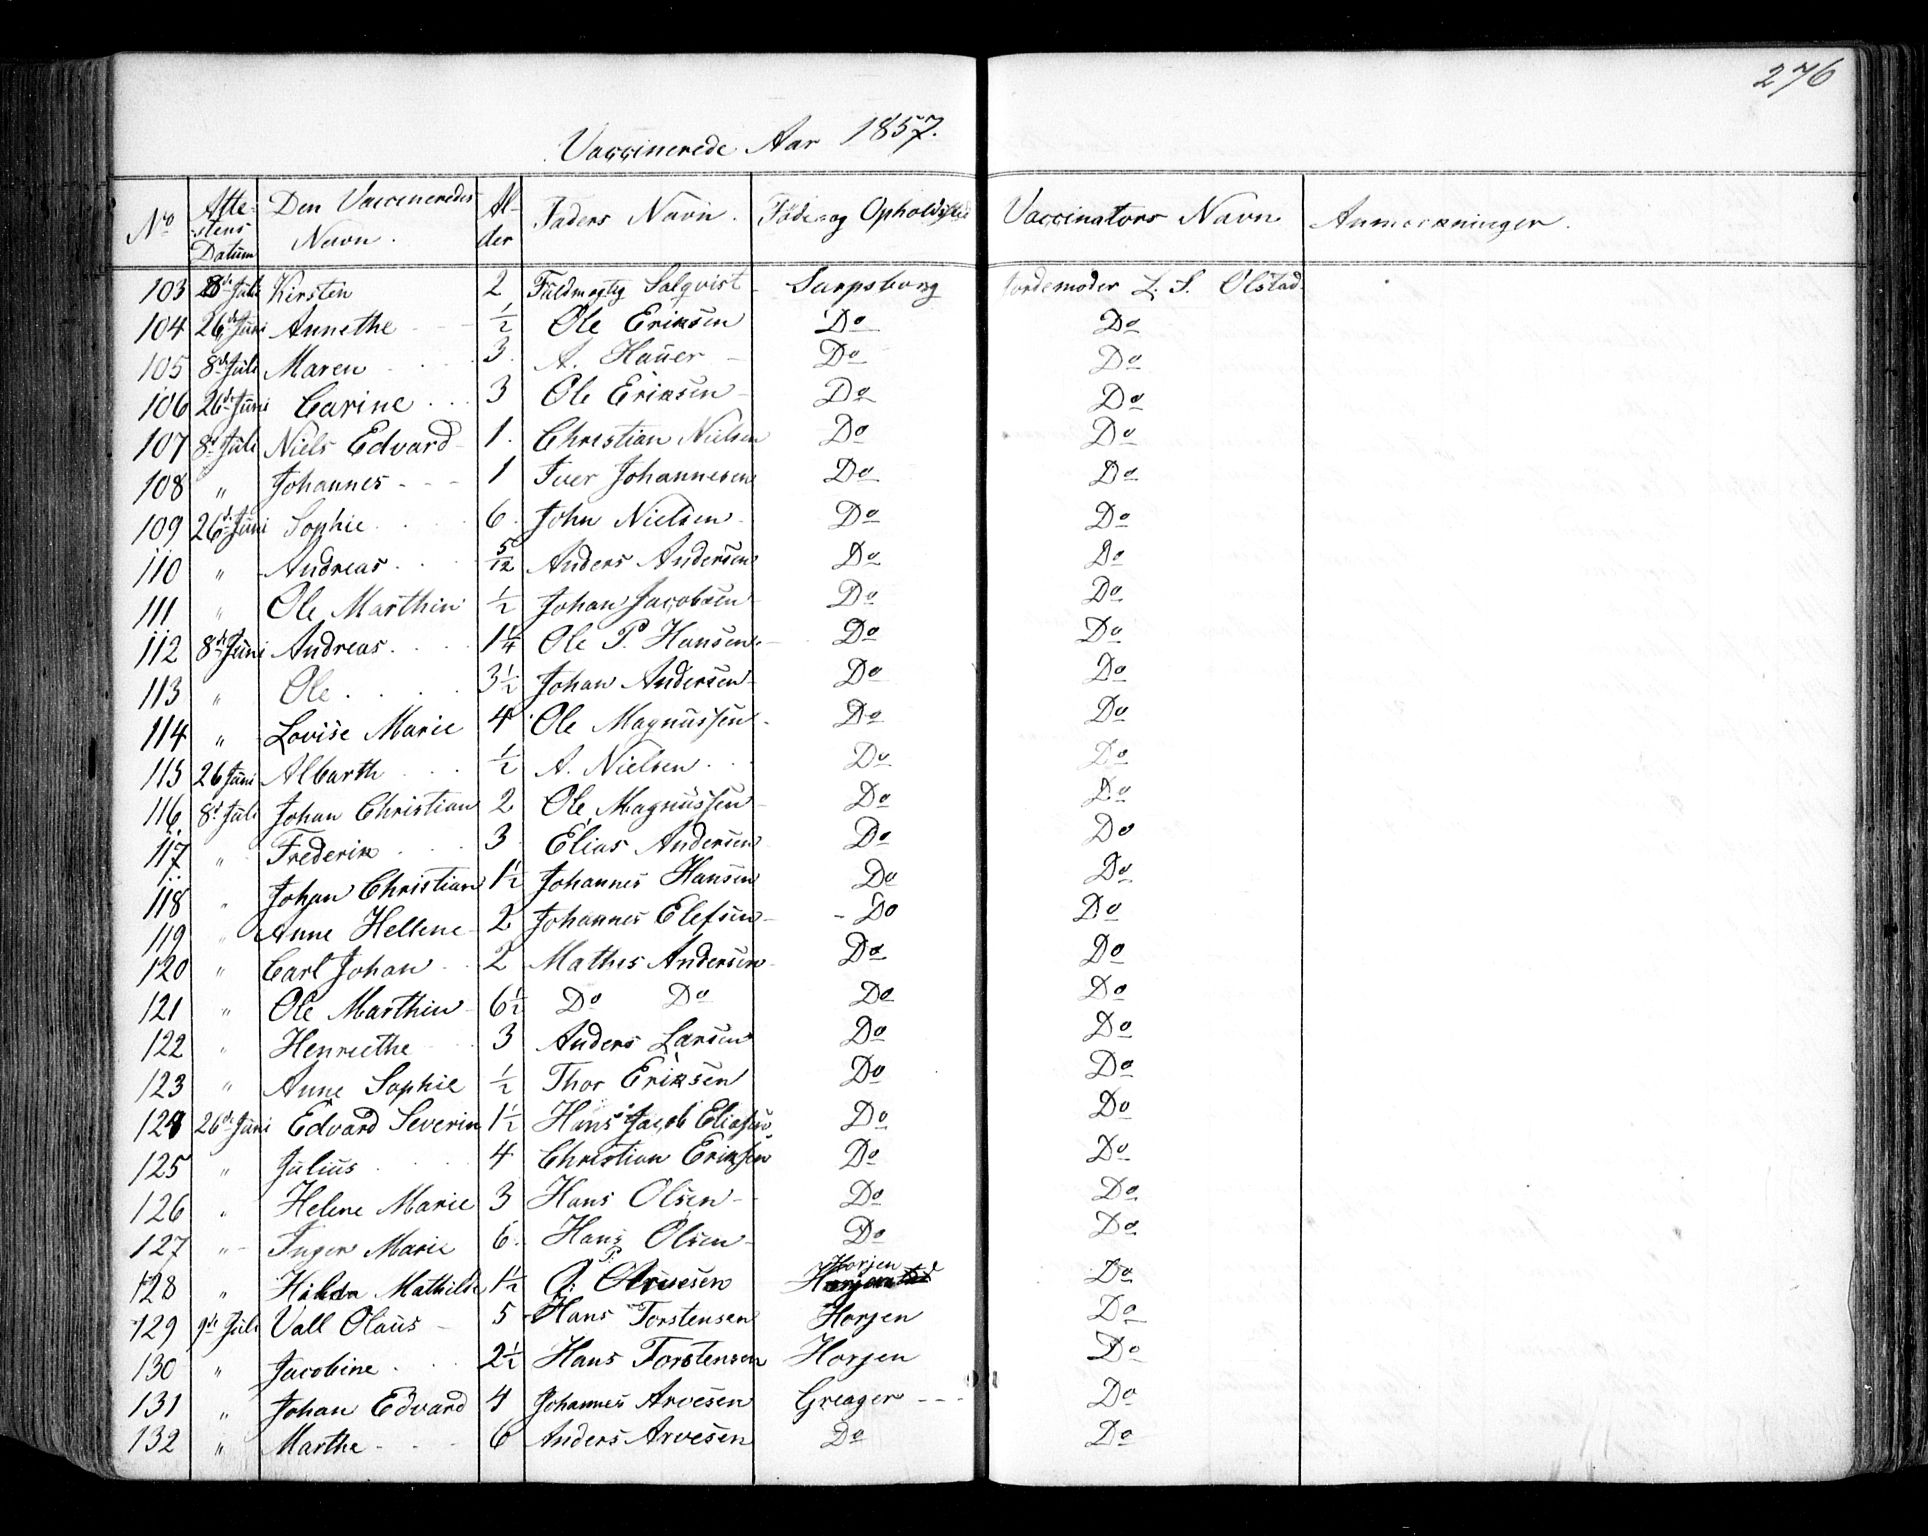 276
Vaccinerede Aar 1857.
No | Atte-stens Datum | Den Vaccineredes Navn. | Al-der | Faders Navn. | Føde og Opholdssted | Vaccinators Navn | Anmærkninger.
103 8de Juli Kirsten 2 Fuldmægtig Salqvist Sarpsborg Jordemoder L. S. Olstad
104 26de Juni Annethe ½ Ole Eriksen Do Do
105 8de Juli Maren 3 A. Hauer Do Do
106 26de Juni Carine 3 Ole Eriksen Do Do
107 8d Juli Niels Edvard 1 Christian Nielsen Do Do
108 " Johannes 1 Iver Johannesen Do Do
109 26de Juni Sophie 6 John Nielsen Do Do
110 " Andreas 5/12 Anders Andersen Do Do
111 " Ole Marthin ½ Johan Jacobsen Do Do
112 8de Juni Andreas 1¼ Ole P. Hansen Do Do
113 " Ole 3½ Johan Andersen Do Do
114 " Lovise Marie 4 Ole Magnussen Do Do
115 26 Juni Albarth ½ A. Nielsen Do Do
116 8d Juli Johan Christian 2 Ole Magnussen Do Do
117 " Frederik 3 Elias Andersen Do Do
118 " Johan Christian 1½ Johannes Hansen Do Do
119 " Anne Hellene 2 Johannes Elefsen Do Do
120 " Carl Johan 2 Mathis Andersen Do Do
121 " Ole Marthin 6½ Do Do Do Do
122 " Henriethe 3 Anders Larsen Do Do
123 " Anne Sophie ½ Thor Eriksen Do Do
124 26de Juni Edvard Severin 1½ Hans Jacob Eliasen Do Do
125 " Julius 4 Christian Eriksen Do Do
126 " Helene Marie 3 Hans Olsen Do Do
127 " Inger Marie 6 Hans Olsen Do Do
128 " Hilda Mathilde 1½ P. Arvesen Horjen Do
129 9de Juli Vall Olaus 5 Hans Torstensen Horjen Do
130 " Jacobine 2½ Hans Torstensen Horjen Do
131 " Johan Edvard 4 Johannes Arvesen Greager Do
132 " Marthe 6 Anders Arvesen Do Do